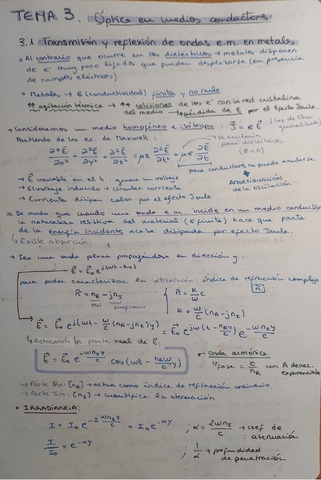 TEMA 3. Óptica en medios conductores
3.1 Transmisión y reflexión de ondas e.m. en metales
• Al contrario que ocurre en los dieléctricos → metales disponen
de e⁻ muy poco ligados que pueden desplazarse (en presencia
de campos eléctricos)
• Metales → σ (conductividad) finita y no nula
↑↑ agitación térmica → ↑↑ colisiones de los e⁻ con la red cristalina
del medio → pérdida de E por el ef. Joule
→ Consideramos un medio homogéneo e isótropo: J = σE (ley de Ohm
Partiendo de las ec de Maxwell:
∂²E/∂x² + ∂²E/∂y² + ∂²E/∂z² = με ∂²E/∂t² + μσ ∂E/∂t
para conductores no puede anularse
↳ E variable en el t: genera un voltaje
↳ El voltaje inducido → circular corriente
AMORTIGUACIÓN
DE LA OSCILACIÓN
↳ Corriente disipan calor por el efecto Joule
De modo que cuando una onda e.m. incide en un medio conductor
la naturaleza resistiva del material (σ finita) hace que parte
de la energía incidente acabe disipada por efecto Joule.
↳ Existe absorción
→ Sea una onda plana propagándose en dirección y:
E = E₀ e^j(wt-ky)
para poder caracterizar la absorción: índice de refracción complejo
ñ = nR - jnI
real
imaginario
E = E₀ e^j(wt - w/c (nR - jnI)y) = E₀ e^jw(t - nRy/c) e^-wnIy/c
↳ Retocando la parte real de E:
E = E₀ e^-wnIy/c cos(wt - nRwy/c)
• Onda armónica
vfase = c/nR con A decrec.
exponencial
→ Parte Re: [nR] → actúa como índice de refracción ordinario.
→ Parte Im: [nI] → cuantifica la atenuación
• IRRADIANCIA:
I = I₀ e^-2wnIy/c = I₀ e^-αy
; α = 2wnI/c → coef de
atenuación
I/I₀ = e^-αy
; 1/α → profundidad
de penetración